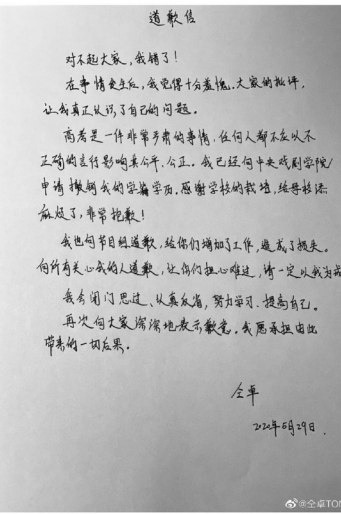 道歉信
对不起大家，我错了！
在事情发生后，我觉得十分羞愧。大家的批评，
让我真正认识了自己的问题。
高考是一件非常严肃的事情，任何人都不应以不
正确的言行影响其公平、公正。我已经向中央戏剧学院
申请撤销我的学籍学历。感谢学校的栽培，给母校添
麻烦了，非常抱歉！
我也向节目组道歉，给你们增加了工作，造成了损失。
向所有关心我的人道歉，让你们担心难过，请一定以我为戒
我会闭门思过、认真反省，努力学习、提高自己。
再次向大家深深地表示歉意。我愿承担由此
带来的一切后果。
仝卓
2020年5月29日.
@仝卓TON